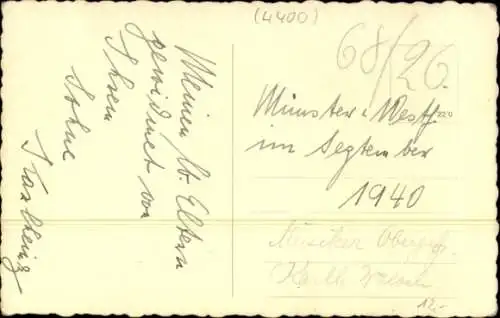 (4400)
68/26.
Meinen lb. Eltern
gewidmet von
Ihrem
Sohne
Karlheinz
Münster i. Westf
im September
1940
Musiker Obergefr.
Karlh.
12.-